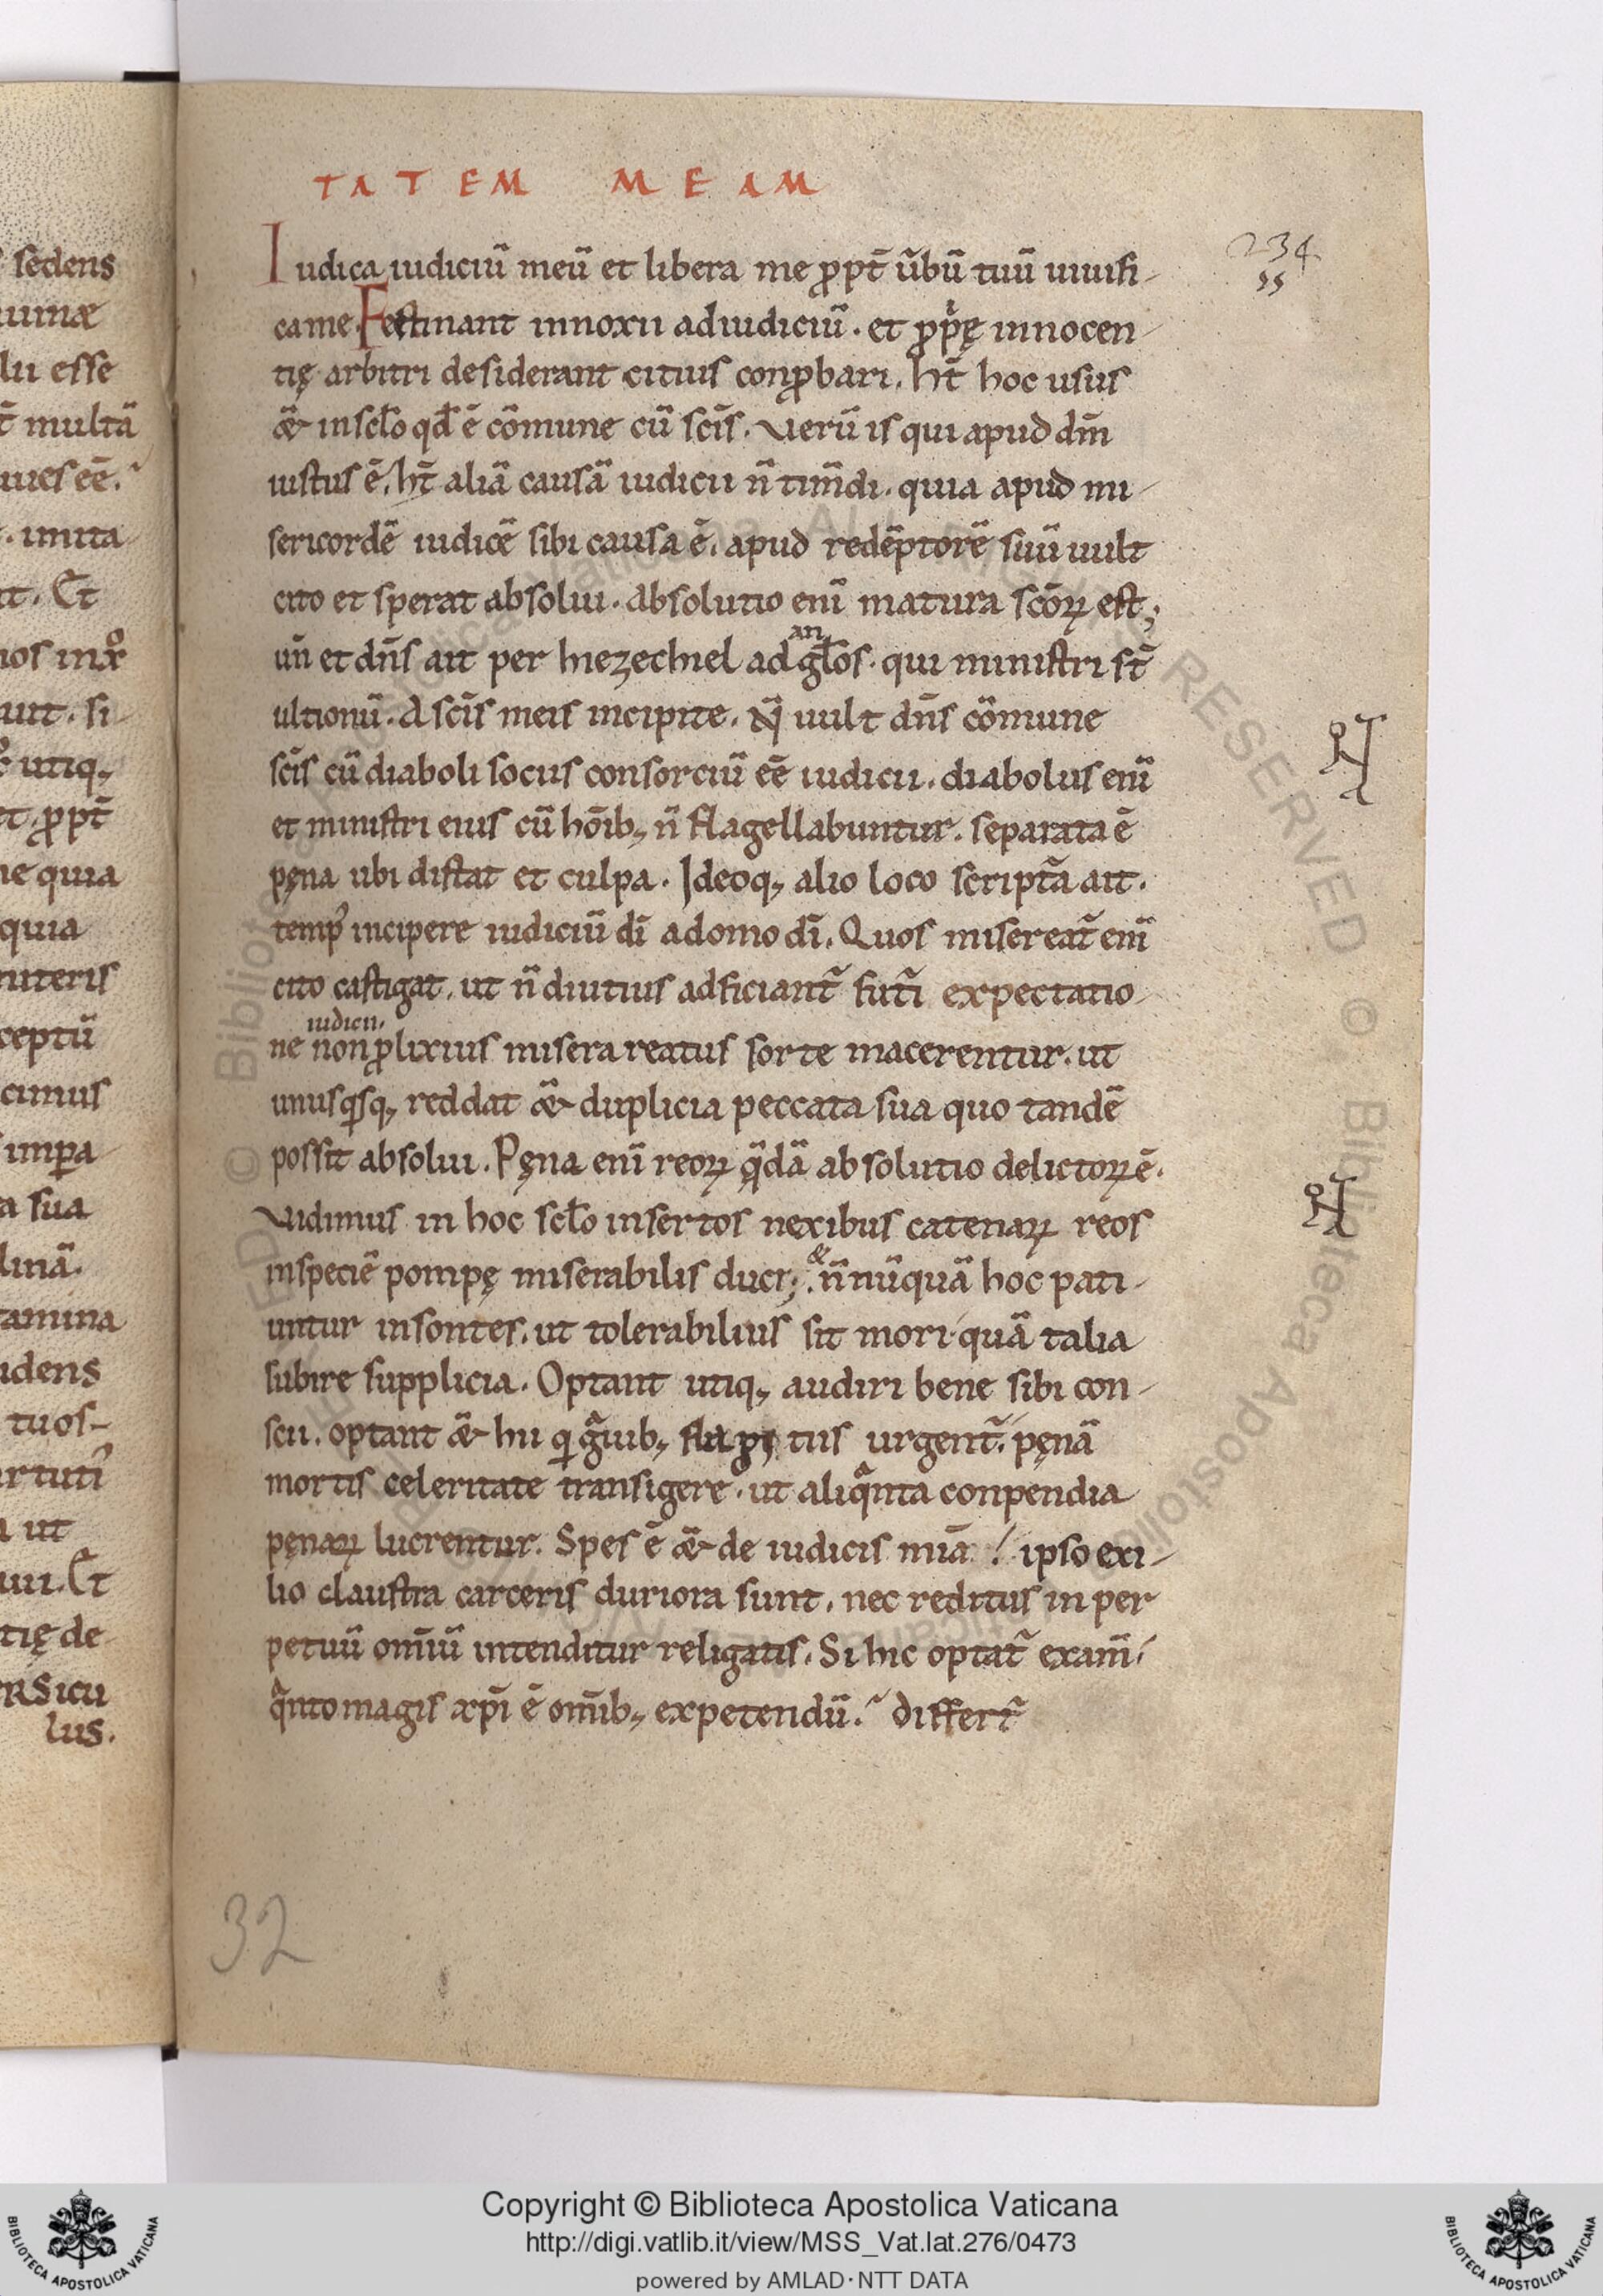 sedens
lu esse
t̄ multā
. imita
quia
quia
cimus
a sua
tamina
tuos
a ut
tię de
lus.
TATEM MEAM
234
Iudica iudiciū meū et libera me ꝓpt̄ ūbū tuū uiuifi-
ca me. Festinant innoxii ad iudiciū. et ꝓp̓ę innocen-
tię arbitri desiderant citius conꝓbari. ht̄ hoc usus
æ̃ in sclo qd̄ ē cōmune cū scīs. Verū is qui apud dm̄
iustus ē, ht̄ aliā causā iudicii n̄ tim̄di. quia apud mi-
sericordē iudicē sibi causa ē. apud redēptorē suū uult
cito et sperat absolui. Absolutio enī matura scōꝝ est;
un̄ et dn̄s ait per hiezechiel ad angłos. qui ministri st̄
ultionū. A scīs meis incipite. Nā uult dn̄s cōmune
scīs cū diaboli sociis consorciū eē iudicii. diabolus enī
et ministri eius cū hōib; n̄ flagellabuntur. separata ē
pęna ubi distat et culpa. Ideoq; alio loco scriptā ait.
temp᾽ incipere iudiciū dī a domo dī. Quos misereat̃ enī
cito castigat, ut n̄ diutius adficiant̃ futī expectatio-
iudicii.
ne non ꝓlixius misera reatus sorte macerentur. ut
unusqsq; reddat æ̃ duplicia peccata sua quo tandē
possit absolui. Pęna enī reoꝝ q̄dā absolutio delictoꝝ ē.
Vidimus in hoc sclo insertos nexibus catenaꝝ reos
in speciē pompę miserabilis duci; & n̄ nūquā hoc pati-
untur insontes. ut tolerabilius sit mori quā talia
subire supplicia. Optant utiq; audiri bene sibi con-
scii. optant æ̃ hii qi gᷓuib; flagitiis urgent̃. pęnā
mortis celeritate transigere. ut aliqᷓnta conpendia
pęnaꝝ lucrentur. Spes ē æ̃ de iudicis miā. ipso exi-
lio claustra carceris duriora sunt. nec reditus in per
petuū omīū intenditur religatis. Si hic optat̃ exam̄
qᷓnto magis xp̄i ē omīb; expetendū. differt̃
32
Copyright © Biblioteca Apostolica Vaticana
http://digi.vatlib.it/view/MSS_Vat.lat.276/0473
powered by AMLAD·NTT DATA
BIBLIOTECA APOSTOLICA VATICANA
BIBLIOTECA APOSTOLICA VATICANA